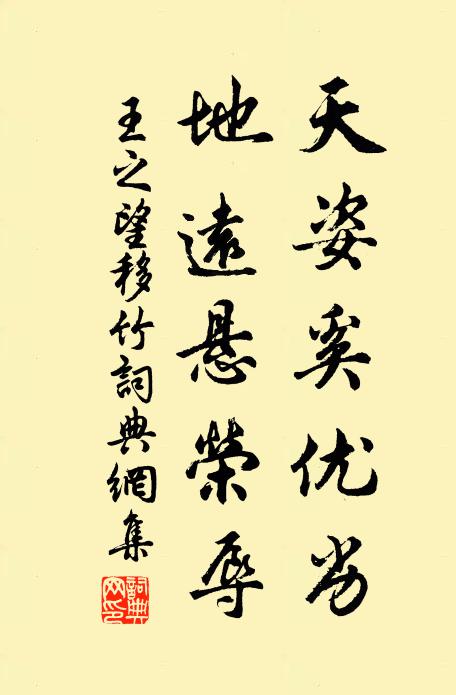 天姿奚优劣
地遠懸榮辱
王之望移竹詞典網集
詞典网印